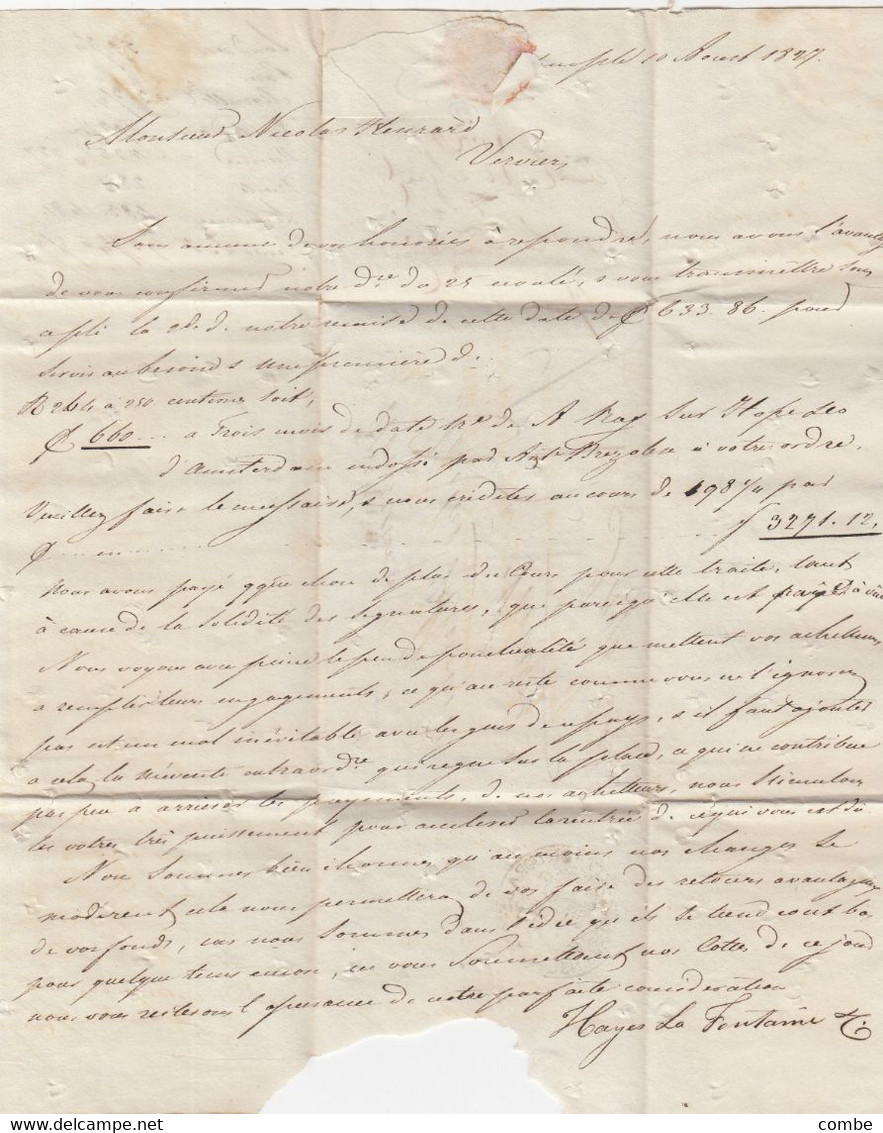 10 Aoust 1827.
Monsieur Nicolas Henrard
Verviers
Sans aucune de vos honorées à repondre, nous avons l'avantage
de vous confirmer notre d.re du 25 écoulé, & vous transmettre sous
ce pli la 2e. d. notre remise de cette date de 633.86. pour
servir au besoin & une première d:
250 centimes soit,
660 ... a Trois mois de date de A Kay sur Hope & Co
d'Amsterdam endossé par à votre ordre.
Veuillez faire le necessaire, & nous créditer au cours de 198 3/4 par
3271.12.
Nous avons payé qque chose de plus du Cours pour cette traite, tant
à cause de la solidité des signatures, que parcequ'elle est à vue
Nous voyons avec peine le peu de ponctualité que mettent vos acheteurs
a remplir leurs engagements, ce qu'au reste comme vous ne l'ignorez
pas est un mal inévitable avec les gens du pays, & il faut ajouter
a cela la mévente extraord.re que regne sur la place, ce qui ne contribue
pas peu a arrierer les payements, de nos acheteurs, nous stimulons
les votres très puissement pour accelerer la rentrée d. ce qui vous est dû
Nous sommes bien charmés qu'au moins nos changes se
modérent cela nous permettra de vos faire des retours avantageux
de vos fonds, car nous sommes dans l'idée qu'ils se tiendront bas
pour quelque tems encore, en vous soumettant nos Cottes de ce jour
nous vous reiterons l'assurance de notre parfaite consideration
Hayes La Fontaine & C.
combe